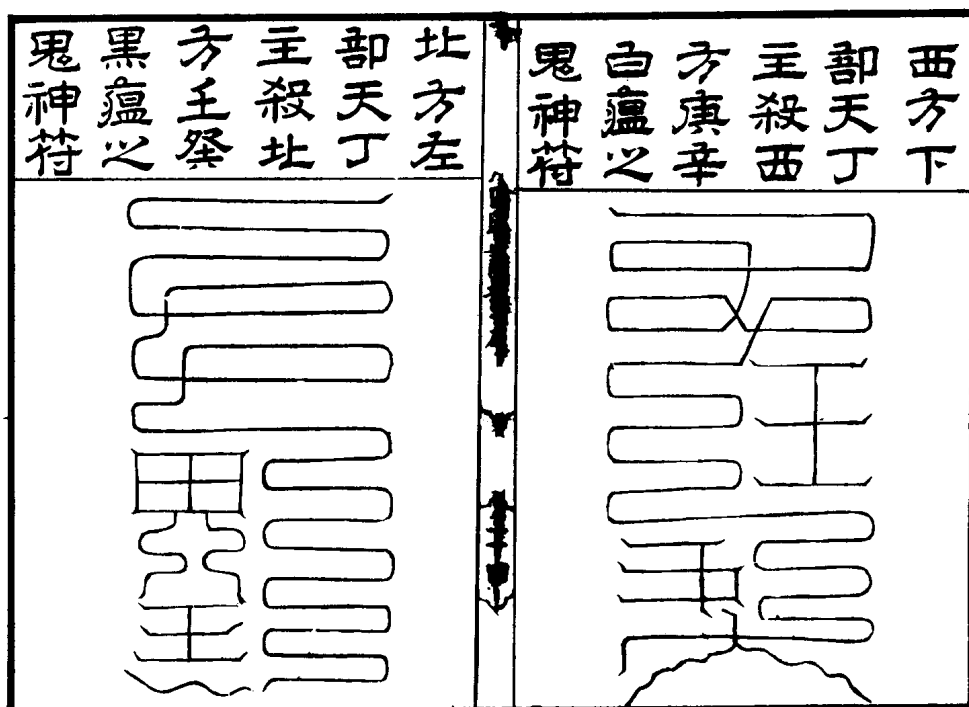 西方下
部天丁
主殺西
方庚辛
白瘟之
鬼神符
北方左
部天丁
主殺北
方壬癸
黑瘟之
鬼神符